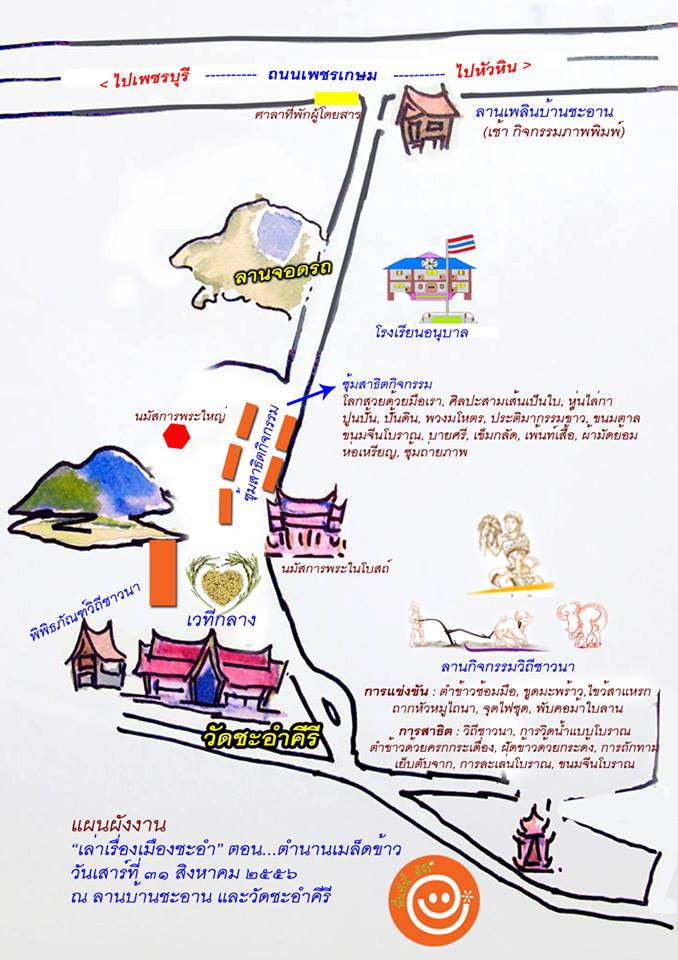 < ไปเพชรบุรี ---------- ถนนเพชรเกษม ---------- ไปหัวหิน >
ศาลาที่พักผู้โดยสาร
ลานเพลินบ้านชะอาน
(เช้า กิจกรรมภาพพิมพ์)
ลานจอดรถ
โรงเรียนอนุบาล
ซุ้มสาธิตกิจกรรม
โลกสวยด้วยมือเรา, ศิลปะสามเส้นเป็นใบ, หุ่นไล่กา
ปูนปั้น, ปั้นดิน, พวงมโหตร, ประติมากรรมข้าว, ขนมตาล
ขนมจีนโบราณ, บายศรี, เข็มกลัด, เพ้นท์เสื้อ, ผ้ามัดย้อม
หอเหรียญ, ซุมถ่ายภาพ
นมัสการพระใหญ่
ซุ้มสาธิตกิจกรรม
นมัสการพระในโบสถ์
พิพิธภัณฑ์วิถีชาวนา
เวทีกลาง
ลานกิจกรรมวิถีชาวนา
การแข่งขัน : ตำข้าวซ้อมมือ, ขูดมะพร้าว,ไขว้สาแหรก
ถากหัวหมูไถนา, จุดไฟชุด, พับคอม้าใบลาน
การสาธิต : วิถีชาวนา, การวิดน้ำแบบโบราณ
ตำข้าวด้วยครกกระเดื่อง, ฝัดข้าวด้วยกระด้ง, การถักทาม
เย็บตับจาก, การละเล่นโบราณ, ขนมจีนโบราณ
วัดชะอำคีรี
แผนผังงาน
"เล่าเรื่องเมืองชะอำ" ตอน...ตำนานเมล็ดข้าว
วันเสาร์ที่ ๓๑ สิงหาคม ๒๕๕๖
ณ ลานบ้านชะอาน และวัดชะอำคีรี